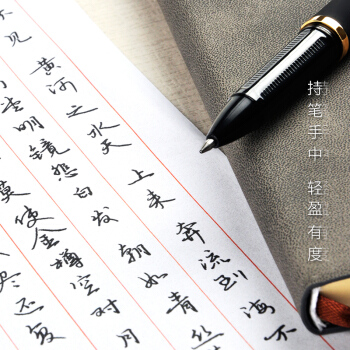 持笔手中 轻盈有度
见黄河之水天上来奔流到海不
堂明镜悲白发朝如青丝
莫使金樽空对月
尽还复